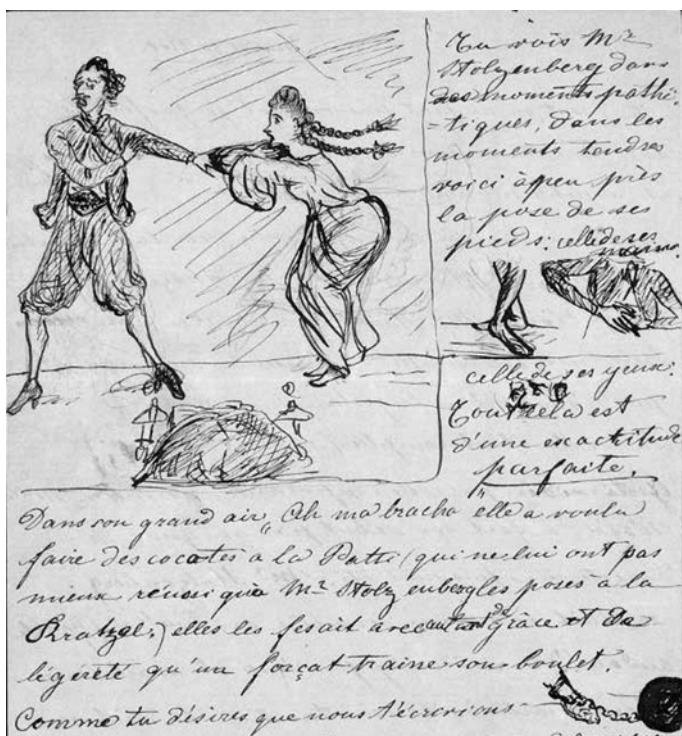 Tu vois Mr
Stolzenberg dans
des moments pathé
-tiques, dans les
moments tendres
voici àpeu près
la pose de ses
pieds: celle de ses
mains.
celle de ses yeux.
Tout cela est
d'une exactitude
parfaite.
Dans son grand air "Ah ma bracha" elle a voulu
faire des cocates à la Patti (qui ne lui ont pas
mieux réussi qu'à Mr Stolzenberg les poses à la
Kratzel;) elles les fesait avec autant de grâce et de
légéreté qu'un forçat traine son boulet.
Comme tu désires que nous t'écrivions